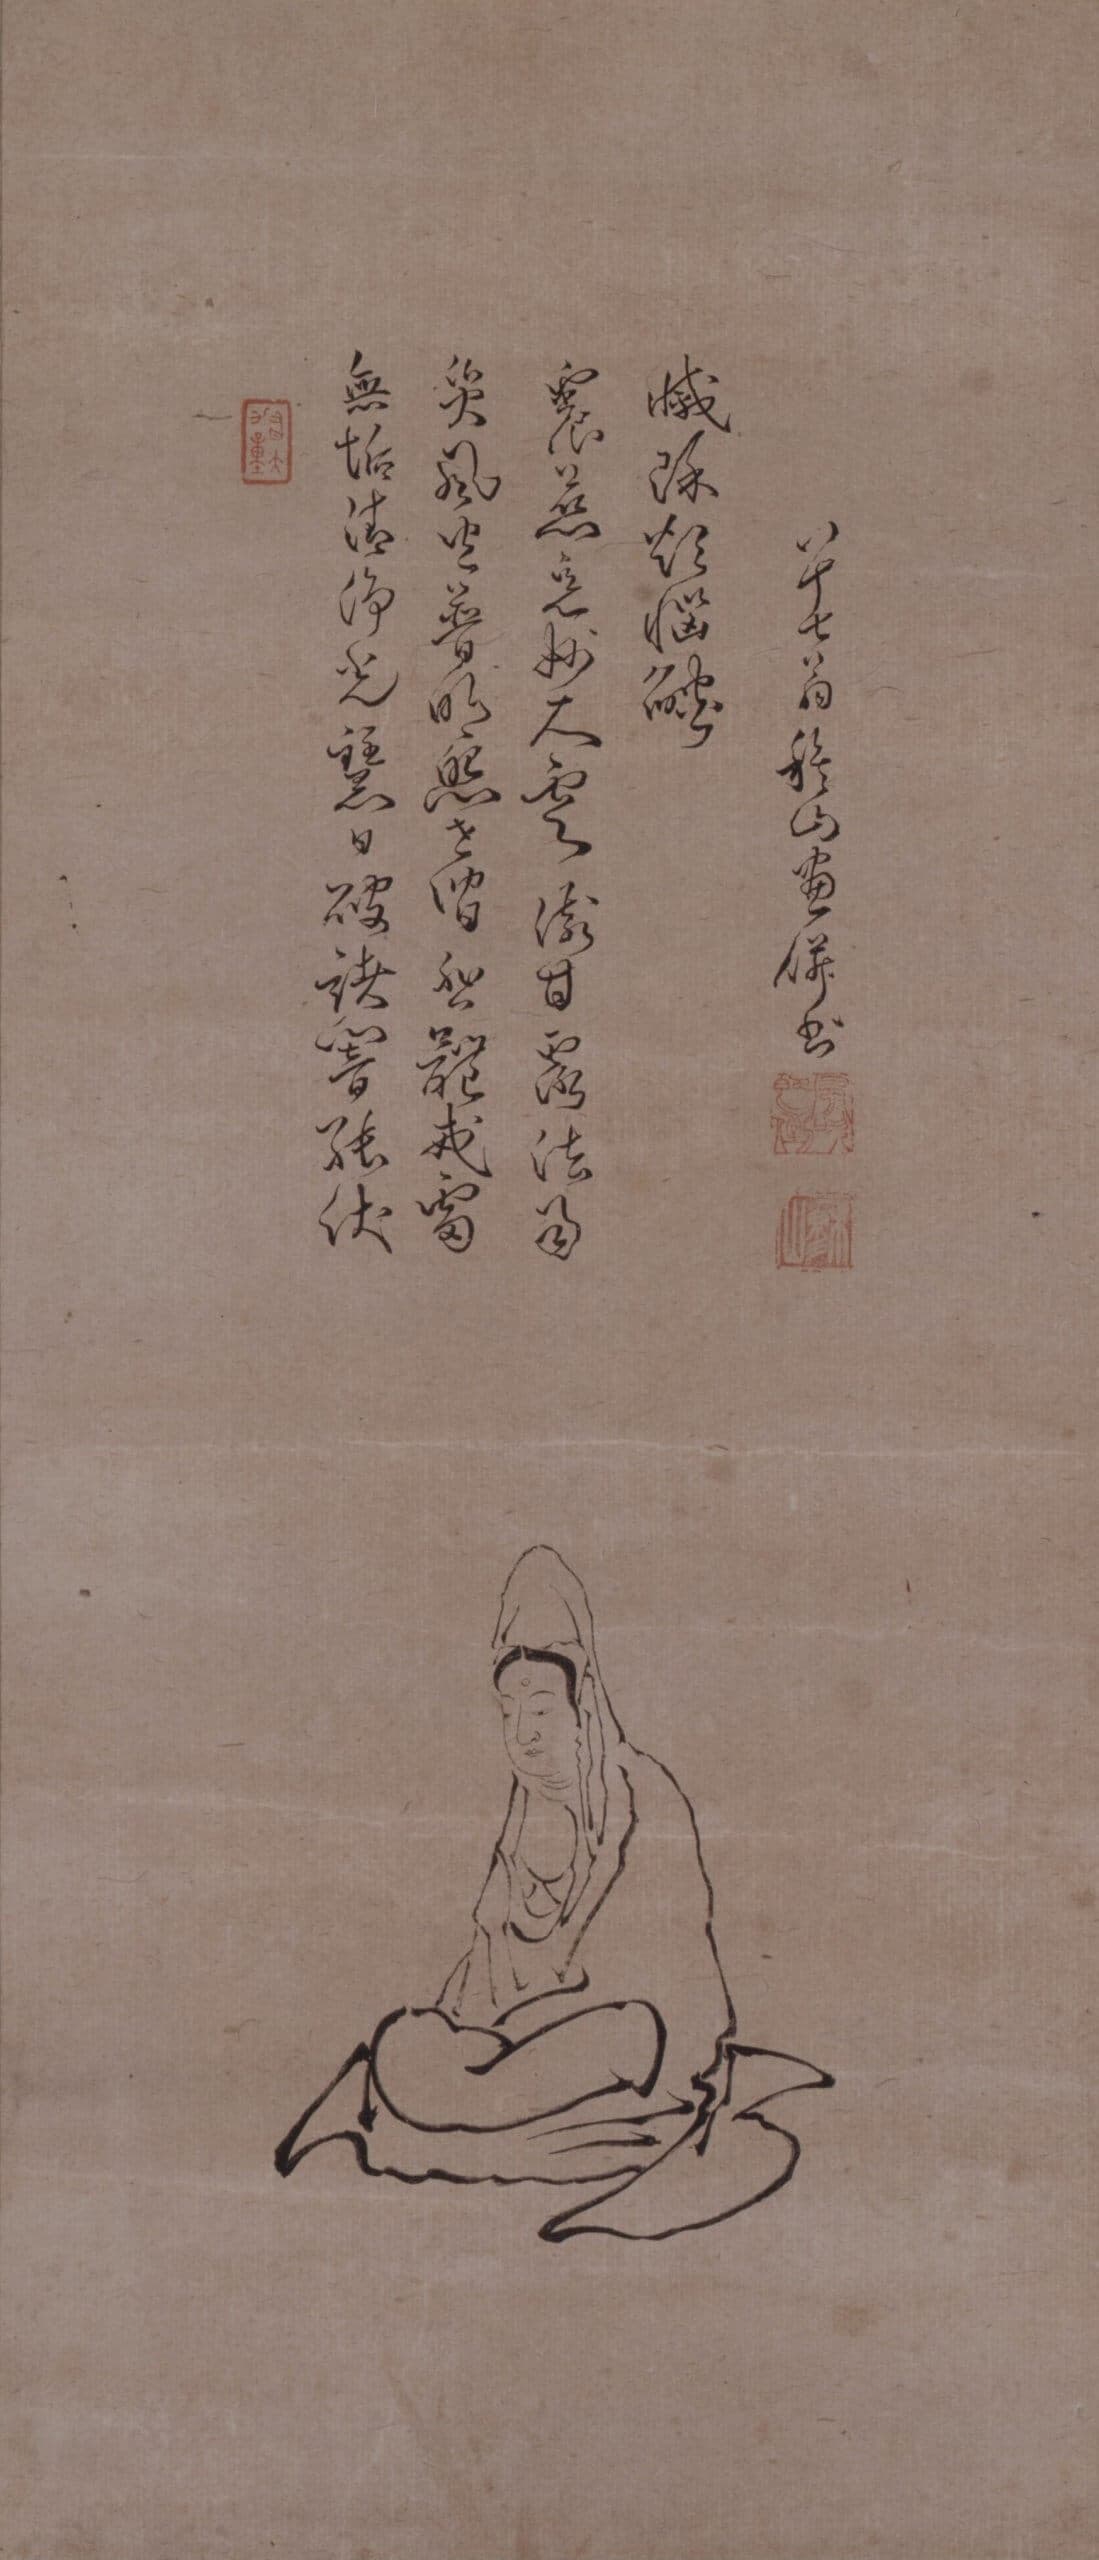 無垢清淨光慧日破諸闇能伏
災風火普明照世間悲體戒雷
震慈意妙大雲澍甘露法雨
滅除煩惱燄
八十七翁穆山畫併書